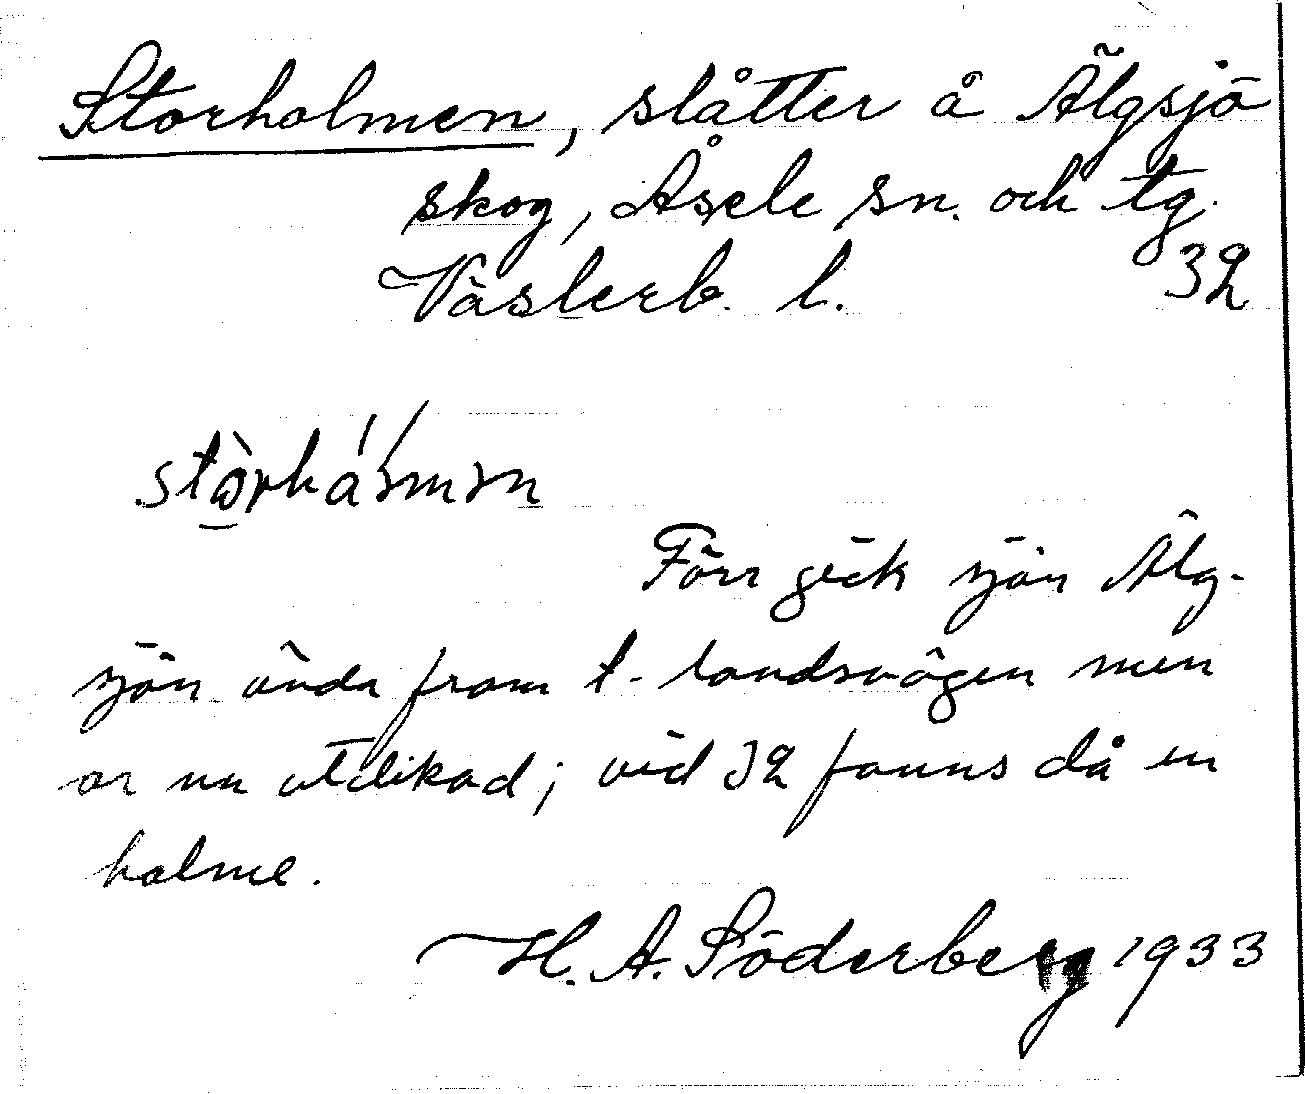 Storholmen, slåtter å Älgsjö
skog, Åsele sn. och tg.
Västerb. l. 32
Förr gick sjön Älg-
sjön ända fram t. landsvägen men
är nu utdikad; vid 32 fanns då en
holme.
H. A. Söderberg 1933